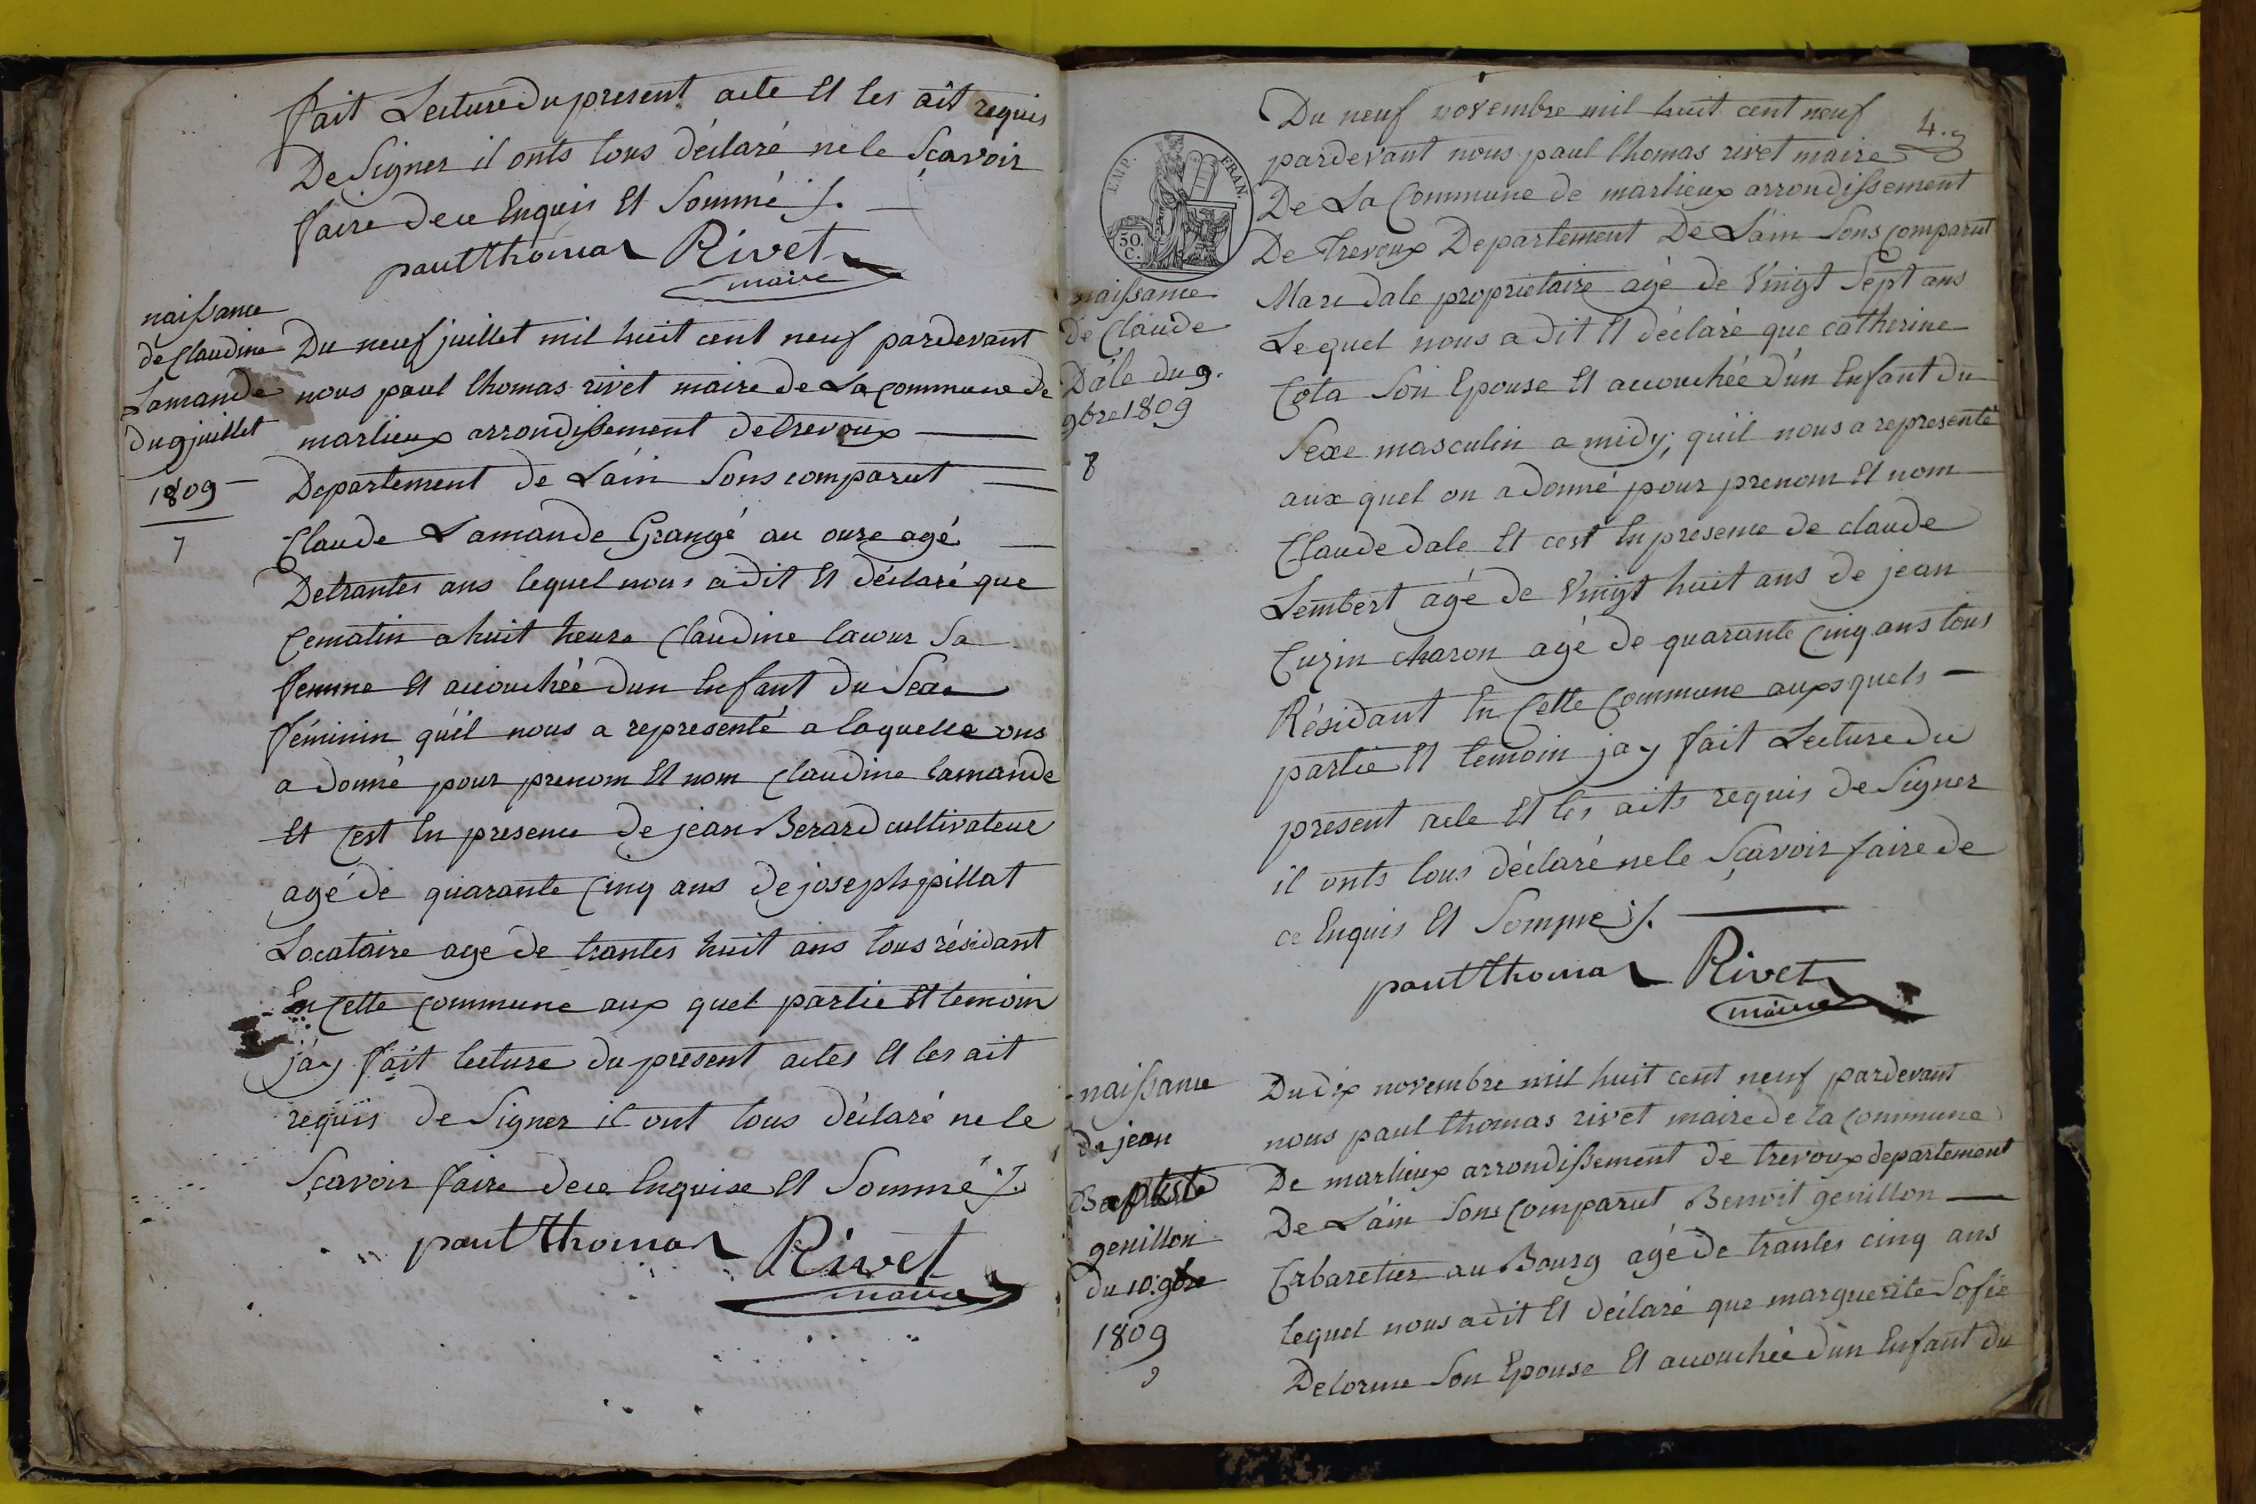 fait Lecture du present acte Et les ait requis
De Signer il onts tous déclaré ne le Sçavoir
faire de ce Enquis Et Sommé ./.
paul thomas Rivet
maire
naissance
de Claudine
Lamande
du 9 juillet
1809
7
Du neuf juillet mil huit cent neuf pardevant
nous paul thomas rivet maire de La commune de
marlieux arrondissement de trevoux
Departement de L'ain Sons comparut
Claude Lamande Grangé au oure agé
De trantes ans lequel nous a dit Et déclaré que
Ce matin a huit heure Claudine lacour Sa
femme Et accouchée d'un Enfant du Sexe
féminin qu'il nous a representé a laquelle ons
a donné pour prenom Et nom Claudine lamande
Et C'est En presence de jean Berard cultivateur
agé de quarante Cinq ans de joseph pillat
Locataire age de trantes huit ans tous résidant
En Cette Commune aux quel partie Et temoin
j'ay fait lecture du present actes Et les ait
requis de Signer il ont tous déclaré ne le
Sçavoir faire de ce Enquise Et Sommé ./.
paul thomas Rivet
maire
4.
EMP. FRAN.
50.
C.
Du neuf novembre mil huit cent neuf
pardevant nous paul thomas rivet maire
De La Commune de marlieux arrondissement
De trevoux Departement De L'ain Sons Comparut
Marc dale proprietaire agé de Vingt Sept ans
Lequel nous a dit Et déclaré que catherine
Cota Son Epouse Et accouchée d'un Enfant du
Sexe masculin a midy, qu'il nous a representé
aux quel on a donné pour prenom Et nom
Claude dale Et c'est En presence de claude
Lembert agé de Vingt huit ans de jean
Cuzin charon agé de quarante Cinq ans tous
Résidant En Cette Commune auxquels
partie Et temoin jay fait Lecture du
present acte Et les aits requis de Signer
il onts tous déclaré ne le Sçavoir faire de
ce Enquis Et Sommé ./.
paul thomas Rivet
maire
naissance
de Claude
Dale du 9.
9bre 1809
8
naissance
de jean
Baptiste
genillon
du 10. 9bre
1809
9
Du dix novembre mil huit cent neuf pardevant
nous paul thomas rivet maire de la commune
De marlieux arrondissement de trevoux departement
De L'ain Sons Comparut Benoit genillon
Cabaretier au Bourg agé de trantes cinq ans
lequel nous a dit Et déclaré que marguerite Sofie
Delorme Son Epouse Et accouchée d'un Enfant du